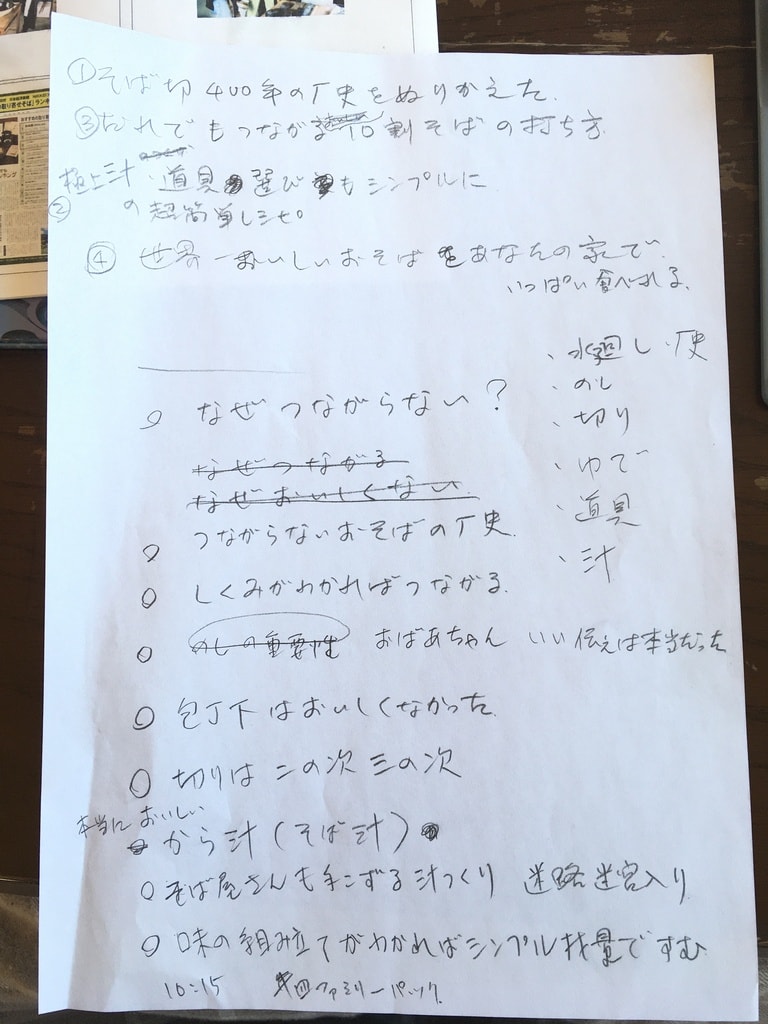 ①そば切400年の丆史をぬりかえた.
③だれでもつながる10割そばの打ち方
極上汁・道具選びもシンプルに
②の超簡単レシピ
④ 世界一おいしいおそばをあなたの家で.
いっぱい食べれる.
、水廻し、丆史
、のし
、切り
、ゆで
、道具
、汁
○ なぜつながらない?
なぜつながる
なぜおいしくない
○ つながらないおそばの丆史.
○ しくみがわかればつながる.
○ のしの重要性 おばあちゃん いい伝えは本当だった
○ 包丁下はおいしくなかった
○ 切りは二の次三の次
本当においしい
から汁(そば汁)
○ そば屋さんも手こずる汁つくり 迷路迷宮入り
○ 味の組み立てがわかればシンプル材量ですむ
10:15 ファミリーパック